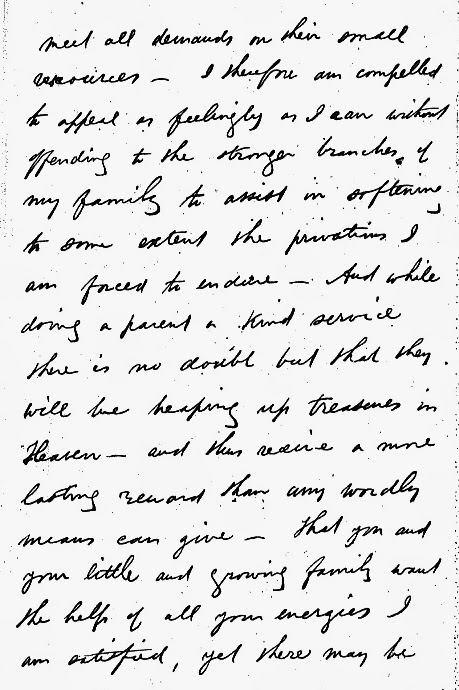 meet all demands on their small
resources — I therefore am compelled
to appeal as feelingly as I can without
offending to the stronger branches of
my family to assist in softening
to some extent the privations I
am forced to endure — And while
doing a parent a kind service
there is no doubt but that they
will be heaping up treasures in
Heaven — and thus receive a more
lasting reward than any wordly
means can give — that you and
your little and growing family want
the help of all your energies I
am satisfied, yet there may be